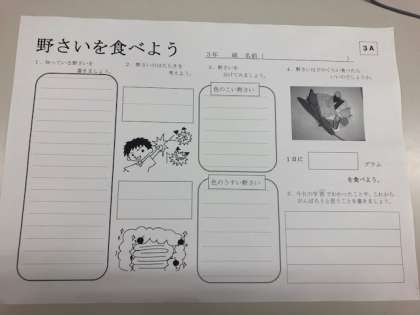 3A
野さいを食べよう
3年　組　名前（　　　）
1．知っている野さいを
書きましょう。
2．野さいのはたらきを
考えよう。
3．野さいを
分けてみましょう。
色のこい野さい
色のうすい野さい
4．野さいはどのくらい食べたら
いいのでしょうか。
1日に
グラム
を食べよう。
5．今日の学習でわかったことや、これから
がんばろうと思うことを書きましょう。